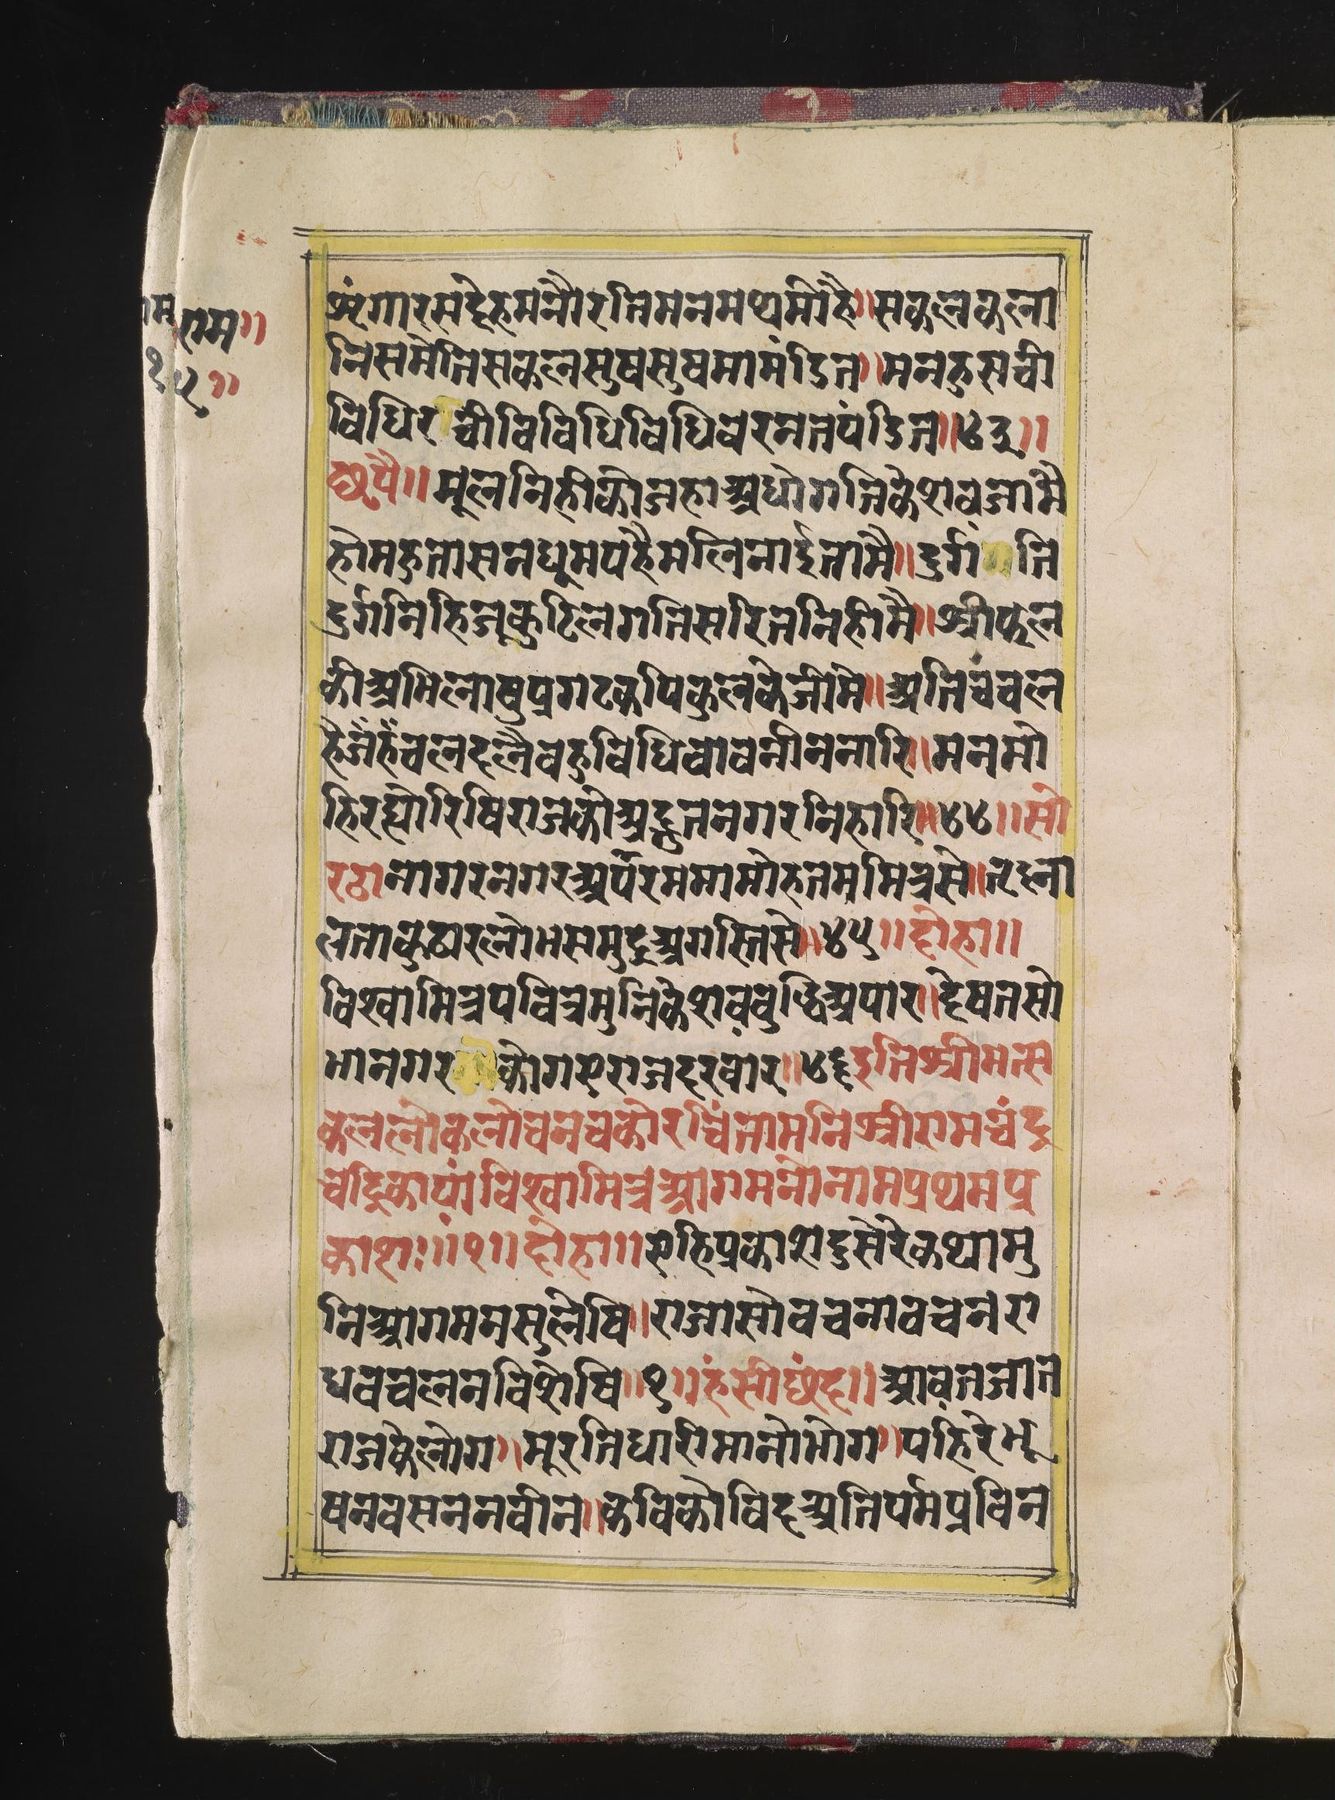 राम॥
१५॥
श्रृंगारसदेहमनौरतिमनमथमोहै॥सकलकला
निसमेतिसकलसुषसुषमामंडित॥मनहुसची
विधिरचीविविधिविधिवरनतपंडित॥४३॥
छपै॥मूलनिहीकोजहाअधोगतिकेशवजामै
होमहुतासनधूमपहैमलिनाईतामै॥दुर्गति
दुर्गनिहिजूकुटिलगतिसरितनिहीमै॥श्रीफल
कीअभिलाषुप्रगटकपिकुलकेजीमे॥अतिचंचल
हैजँहँचलदलैबहुविधिवावनीननारि॥मनमो
हिरह्योरिषिराजकोअद्भुतनगरनिहारि॥४४॥सो
रठानागरनगरअपरममामोहतममित्रसे॥तृस्ना
लताकुठारलोभसमुद्रअगस्तिसे॥४५॥दोहा॥
विश्वामित्रपवित्रमुनिकेशवबुद्धिअपार॥देषतसो
भानगरकोगएराजदरबार॥४६इतिश्रीमत्स
कललोकलोचनचकोरचिंतामनिश्रीरामचंद्र
चंद्रिकायांविश्वामित्रआगमनोनामप्रथमप्र
काशः॥१॥दोहा॥एहिप्रकाशदुसरेकथामु
निआगमनसुलेषि॥राजासोवचनावचनरा
घवचलनविशेषि॥१॥हंसीछंद॥आवतजात
राजकेलोग॥मूरतिधारीमानोभोग॥पहिरेभू
षनवसननवीन॥कविकोविदअतिपर्मप्रविन